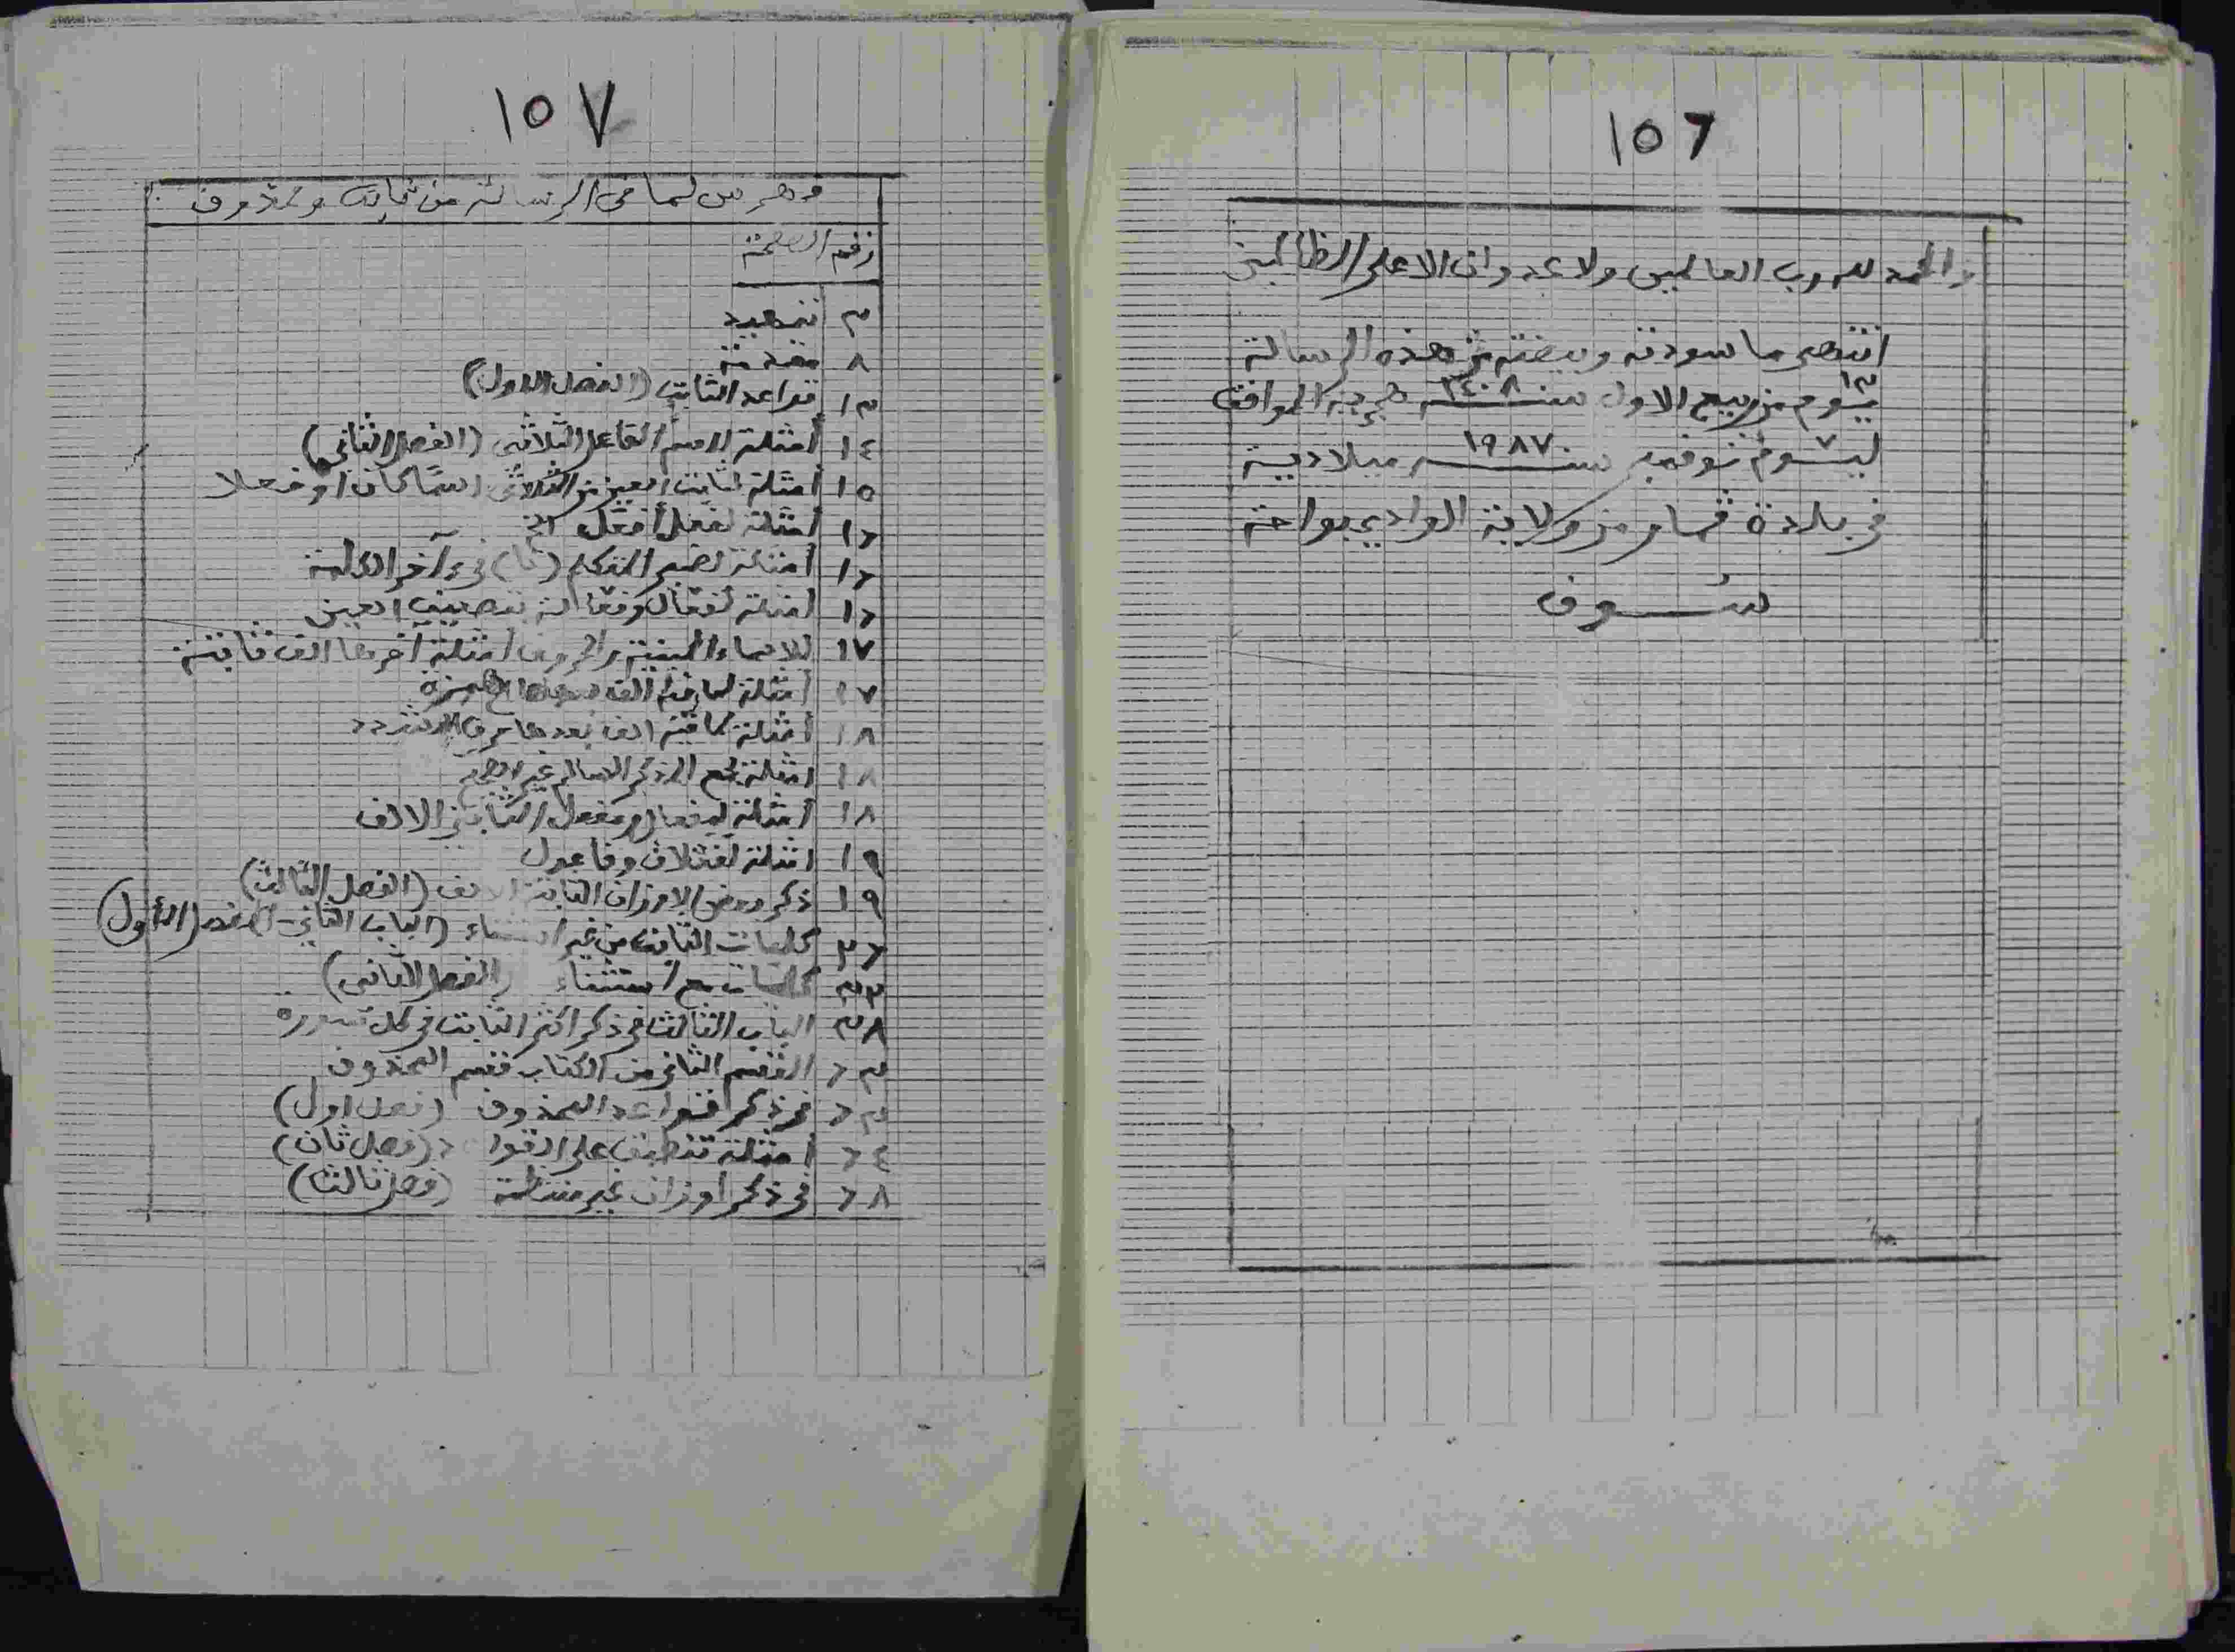 ١٥٦
والحمد لله رب العالمين ولا عدوان الا على الظالمين
انتهى ما سودته وبيضته من هذه الرسالة
يوم ١٣ من ربيع الاول سنة ١٤٠٨ هجرية الموافق
ليوم ٧ نوفمبر سنة ١٩٨٧ ميلادية
في بلدة قمار من ولاية الوادي بواحة
سوف
١٥٧
فهرس لما في الرسالة من ثابت ومحذوف
رقم الصفحة
٣ تمهيد
٨ مقدمة
١٣ قواعد الثابت (الفصل الاول)
١٤ أمثلة لاسم الفاعل الثلاثي (الفصل الثاني)
١٥ أمثلة لثابت العين من الثلاثي اسما كان او فعلا
١٦ أمثلة لفعل أفعل الخ
١٦ أمثلة لضمير المتكلم (نا) في آخر الكلمة
١٦ امثلة لفعال وفعالة بتضعيف العين
١٧ للاسماء المبنية والحروف أمثلة آخرها الف ثابتة
١٧ أمثلة لما فيه الف بعدها همزة
١٨ أمثلة لما فيه الف بعدها حرف مشدد
١٨ امثلة لجمع المذكر السالم غير
١٨ أمثلة لمفعال ومفعال الثابتي الالف
١٩ امثلة لفعلان وفاعول
١٩ ذكر بعض الاوزان الثابتة الالف (الفصل الثالث)
٢٦ كلمات الثابت من غير استثناء (الباب الثاني - الفصل الأول)
٣٣ كلمات مع استثناء (الفصل الثاني)
٣٨ الباب الثالث في ذكر اكثر الثابت في كل سورة
٦٣ القسم الثاني من الكتاب قسم المحذوف
٦٣ في ذكر قواعد المحذوف (فصل اول)
٦٤ امثلة تنطبق على القواعد (فصل ثان)
٦٨ في ذكر أوزان غير منتظمة (فصل ثالث)